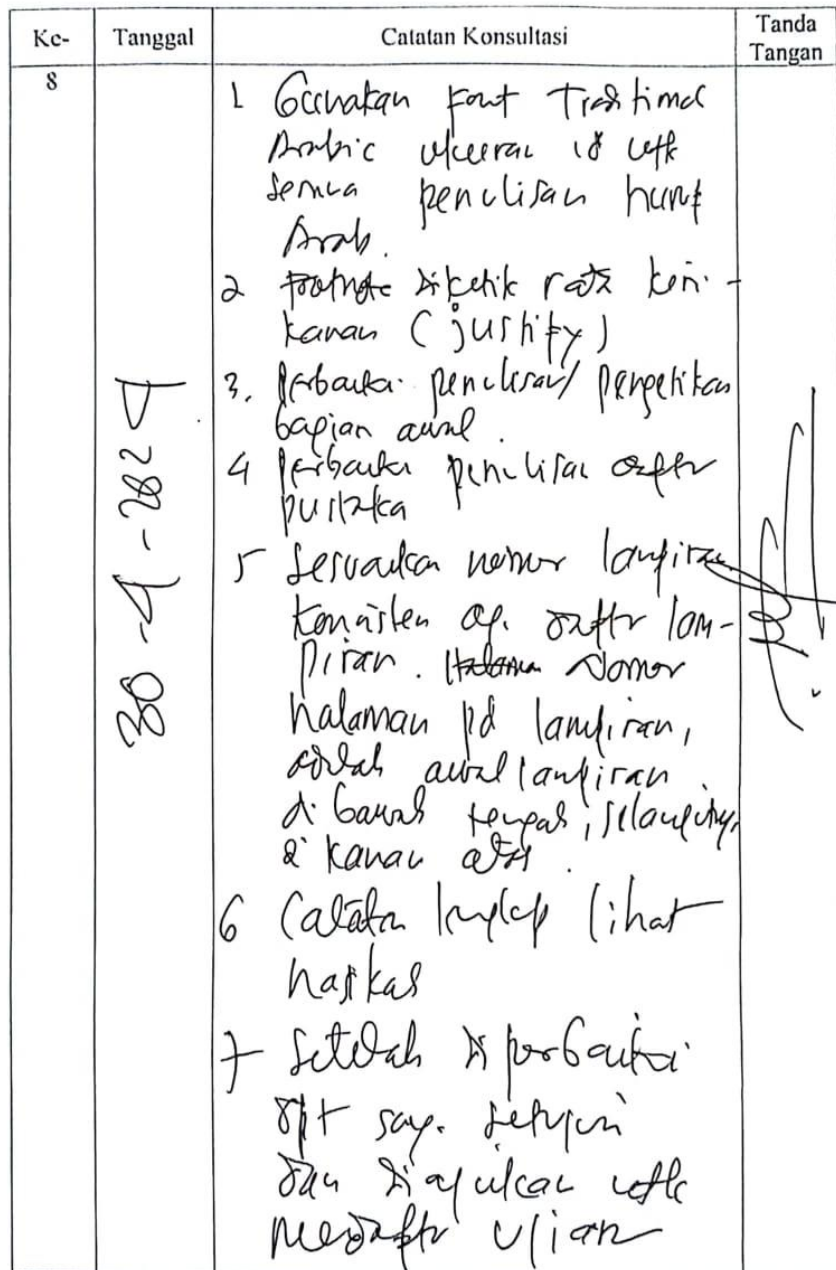 Ke- Tanggal Catatan Konsultasi Tanda Tangan
8
30-4-2024
1 Gunakan font Traditional
Arabic ukuran 18 utk
semua penulisan huruf
Arab.
2 Footnote diketik rata kiri-
kanan (justify)
3. Perbaiki penulisan/pengetikan
bagian awal.
4 Perbaiki penulisan daftar
pustaka
5 Sesuaikan nomor lampiran
konsisten dg. daftar lam-
piran. Nomor
halaman pd lampiran,
awal lampiran
di bawah tengah, selanjutnya
di kanan atas.
6 Catatan lengkap lihat
naskah
7 Setelah diperbaiki
dpt saya setujui
dan diajukan utk
mendaftar ujian